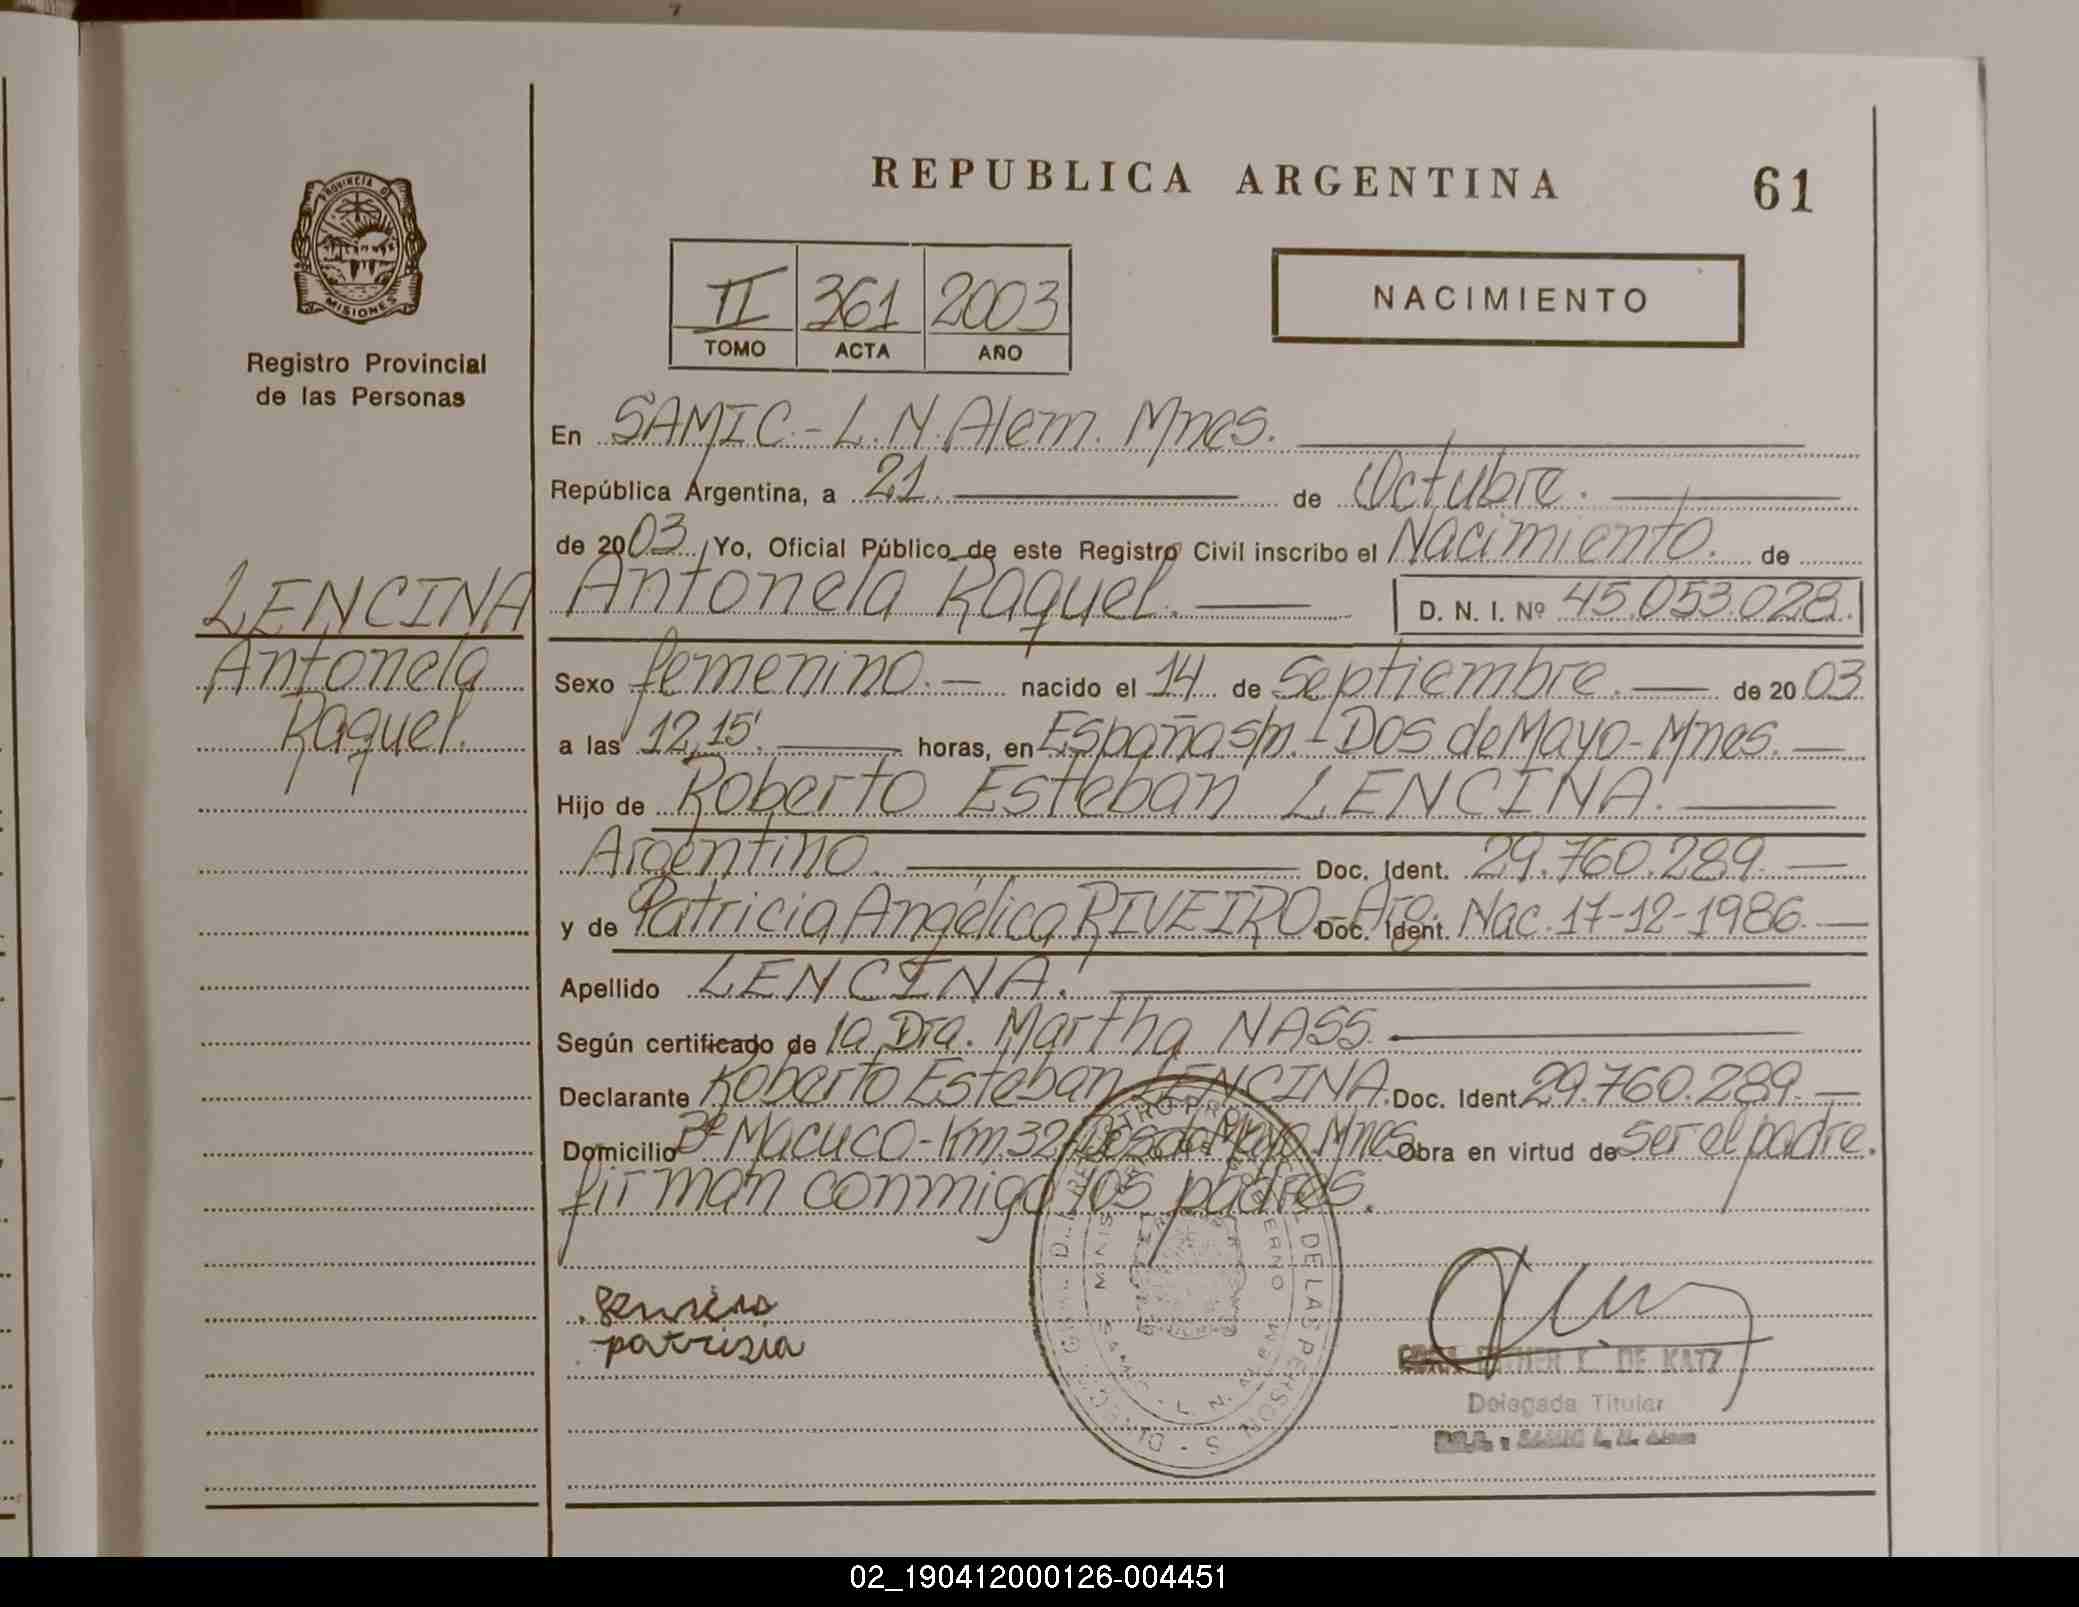 REPUBLICA ARGENTINA
61
PROVINCIA D
MISIONES
Registro Provincial
de las Personas
II 361 2003
TOMO ACTA AÑO
NACIMIENTO
En SAMIC.-L.N.Alem. Mnes.
República Argentina, a 21. de Octubre.
de 2003. Yo, Oficial Público de este Registro Civil inscribo el Nacimiento. de
LENCINA
Antonela Raquel.
D. N. I. Nº 45.053.028.
Antonela
Raquel.
Sexo femenino. nacido el 14 de Septiembre. de 2003
a las 12,15'. horas, en España s/n.-Dos de Mayo-Mnes.
Hijo de Roberto Esteban LENCINA.
Argentino. Doc. Ident. 29.760.289.
y de Patricia Angélica RIVEIRO-Arg. Doc. Ident. Nac. 17-12-1986.
Apellido LENCINA.
Según certificado de la Dra. Martha NASS.
Declarante Roberto Esteban LENCINA. Doc. Ident. 29.760.289.
Domicilio Bº Macuco-Km.32-Dos de Mayo. Mnes. Obra en virtud de ser el padre.
firman conmigo los padres.
patrisia
DE LAS PERSONAS
L. N. ALEM
DE KATZ
Delegada Titular
L. N. Alem
02_190412000126-004451